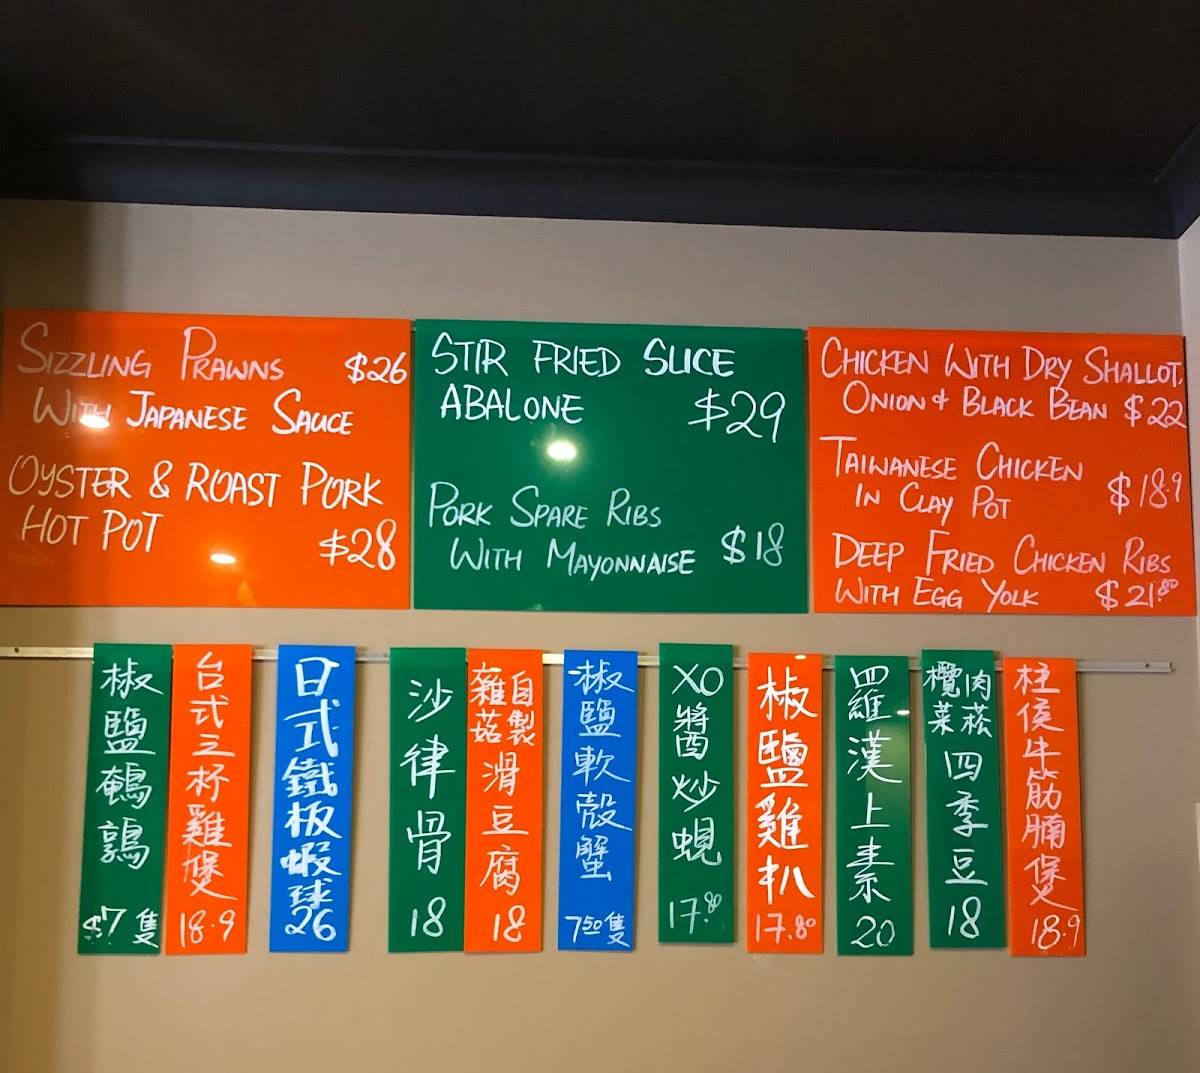 SIZZLING PRAWNS $26
WITH JAPANESE SAUCE
OYSTER & ROAST PORK
HOT POT $28
STIR FRIED SLICE
ABALONE $29
PORK SPARE RIBS
WITH MAYONNAISE $18
CHICKEN WITH DRY SHALLOT,
ONION & BLACK BEAN $22
TAIWANESE CHICKEN
IN CLAY POT $18.9
DEEP FRIED CHICKEN RIBS
WITH EGG YOLK $21.80
椒鹽鵪鶉
$7隻
台式三杯雞煲
18.9
日式鐵板蝦球
26
沙律骨
18
自製雜菇滑豆腐
18
椒鹽軟殼蟹
7.50隻
XO醬炒蜆
17.80
椒鹽雞扒
17.80
羅漢上素
20
肉菘欖菜四季豆
18
柱侯牛筋腩煲
18.9